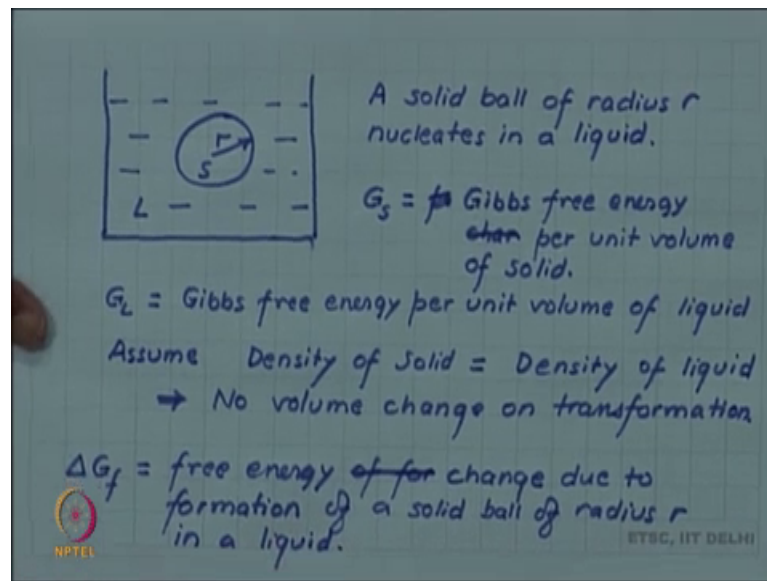 A solid ball of radius r
nucleates in a liquid.
r
S
L
G_S = Gibbs free energy
per unit volume
of solid.
G_L = Gibbs free energy per unit volume of liquid
Assume Density of solid = Density of liquid
→ No volume change on transformation
ΔG_f = free energy change due to
formation of a solid ball of radius r
in a liquid.
NPTEL
ETSC, IIT DELHI